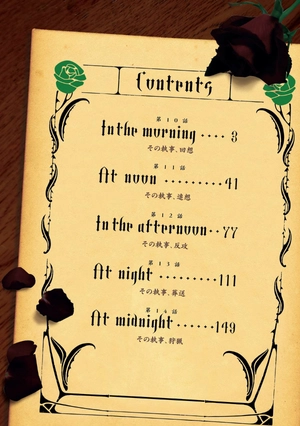 Contents
第10話
In the morning ···· 3
その執事、回想
第11話
At noon ········· 41
その執事、遺憾
第12話
In the afternoon ·· 77
その執事、反攻
第13話
At night ········· 111
その執事、葬送
第14話
At midnight ······ 149
その執事、狩猟